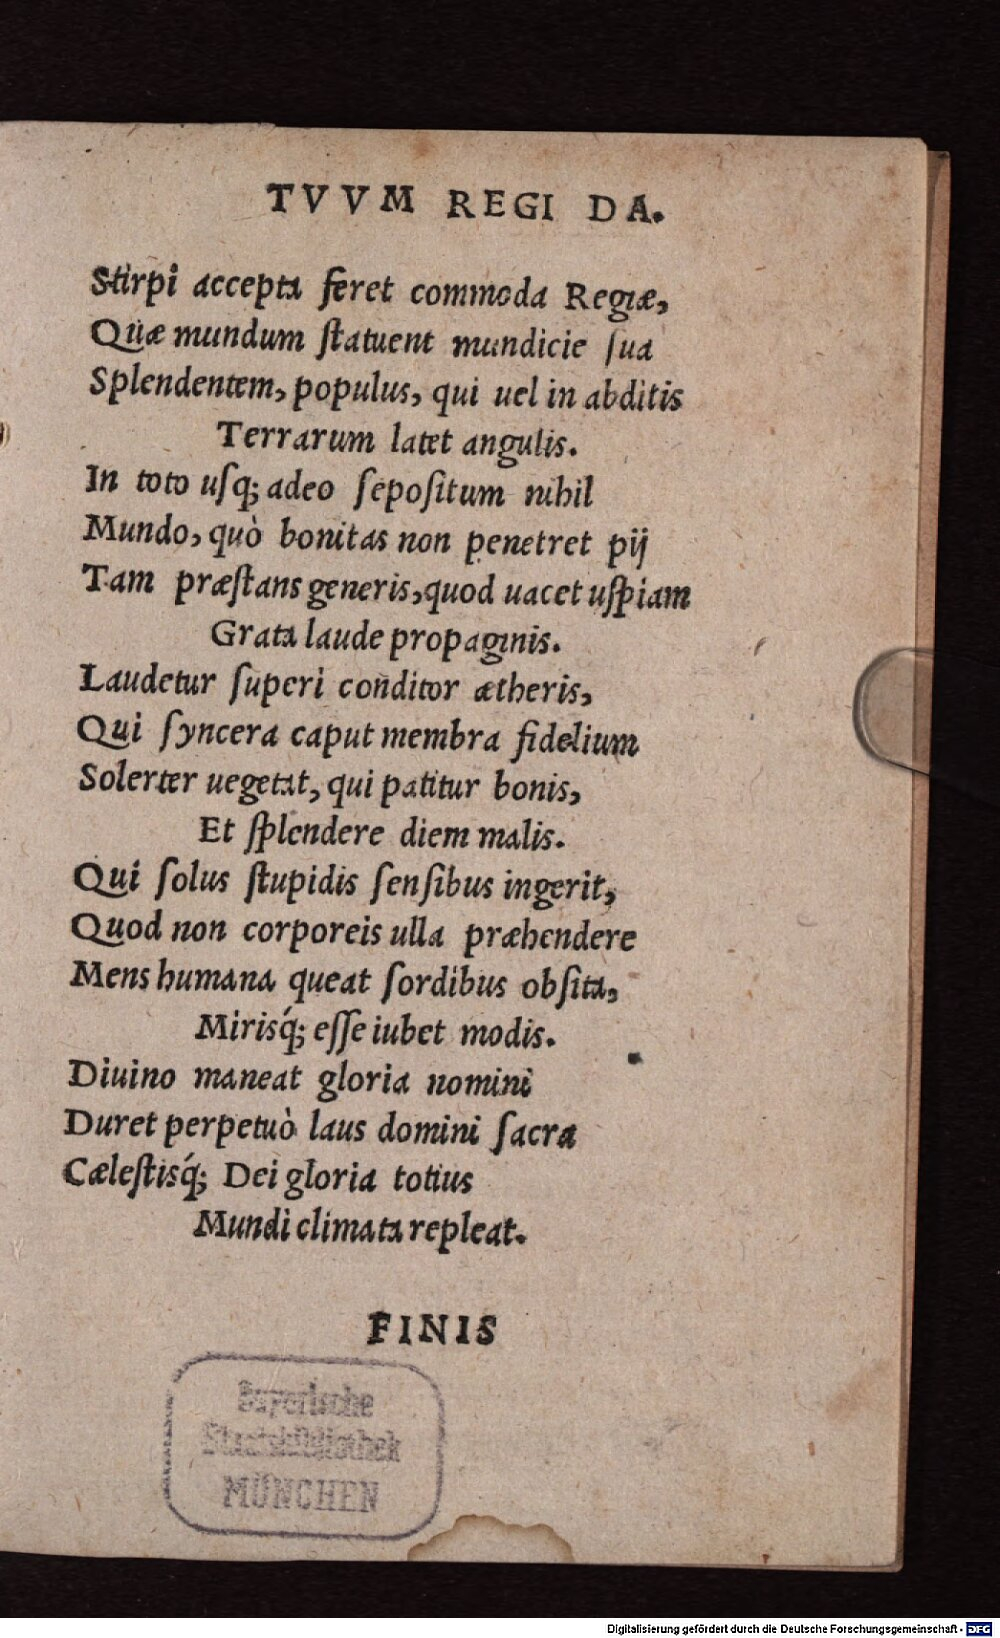 TVVM REGI DA.
Stirpi accepta feret commoda Regiæ,
Quæ mundum ſtatuent mundicie ſua
Splendentem, populus, qui uel in abditis
Terrarum latet angulis.
In toto uſq; adeo ſepoſitum nihil
Mundo, quò bonitas non penetret pij
Tam præſtans generis, quod uacet uſpiam
Grata laude propaginis.
Laudetur ſuperi conditor ætheris,
Qui ſyncera caput membra fidelium
Solerter uegetat, qui patitur bonis,
Et ſplendere diem malis.
Qui ſolus ſtupidis ſenſibus ingerit,
Quod non corporeis ulla præhendere
Mens humana queat ſordibus obſita,
Mirisq́; eſſe iubet modis.
Diuino maneat gloria nomini
Duret perpetuò laus domini ſacra
Cæleſtisq́; Dei gloria totius
Mundi climata repleat.
FINIS
Bayerische
Staatsbibliothek
MÜNCHEN
Digitalisierung gefördert durch die Deutsche Forschungsgemeinschaft - DFG